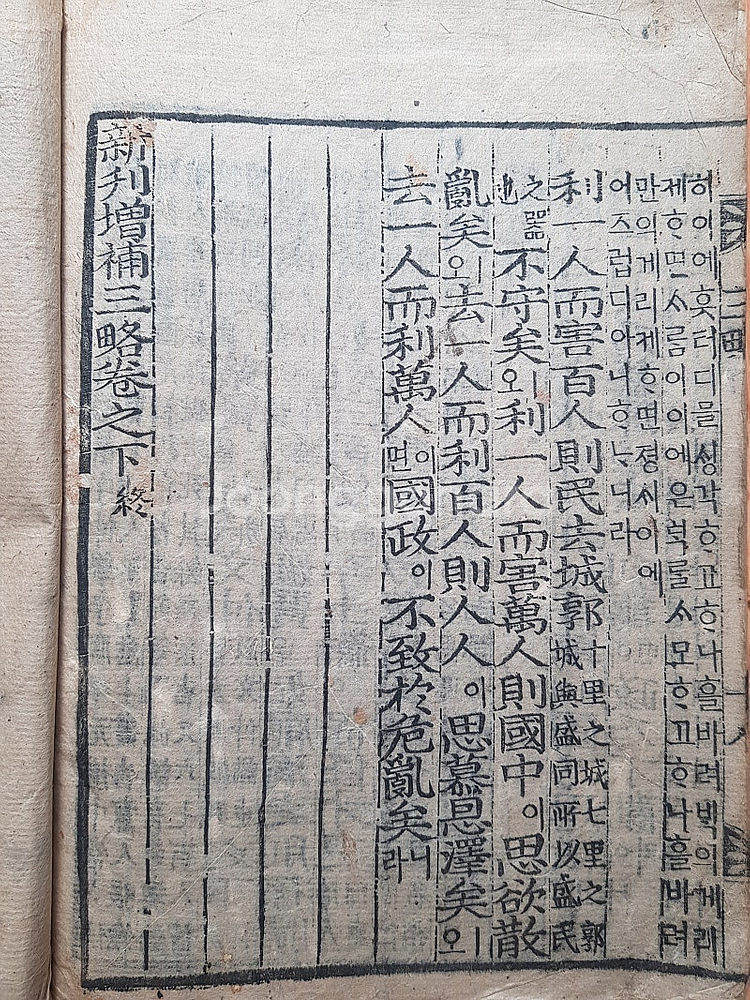 히이에흣터디믈싱각ᄒᆞ고ᄒᆞ나흘바려빅의게리
제ᄒᆞ면ᄉᆞ름이이에은ᄐᆡᆨ를ᄉᆞ모ᄒᆞ고ᄒᆞ나흘바려
만의게리케ᄒᆞ면졍ᄉᆡ이에
어즈럽디아니ᄒᆞᄂᆞ니라
利一人而害百人則民去城郭十里之城七里之郭城與盛同所以盛民
之器也不守矣오ㅣ利一人而害萬人則國中이思欲散
亂矣오ㅣ去一人而利百人則人人이思慕恩澤矣오ㅣ
去一人而利萬人이면國政이不致於危亂矣니라
新刊增補三略卷之下終